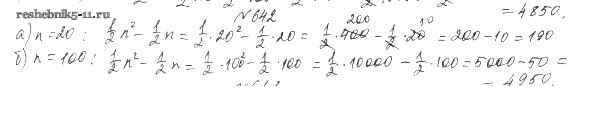 = 4850.
reshebnik5-11.ru
№ 642
а) n = 20 : 1/2 n² - 1/2 n = 1/2 · 20² - 1/2 · 20 = 1/2 · 400 - 1/2 · 20 = 200 - 10 = 190
200 10
б) n = 100 : 1/2 n² - 1/2 n = 1/2 · 100² - 1/2 · 100 = 1/2 · 10000 - 1/2 · 100 = 5000 - 50 =
= 4950.